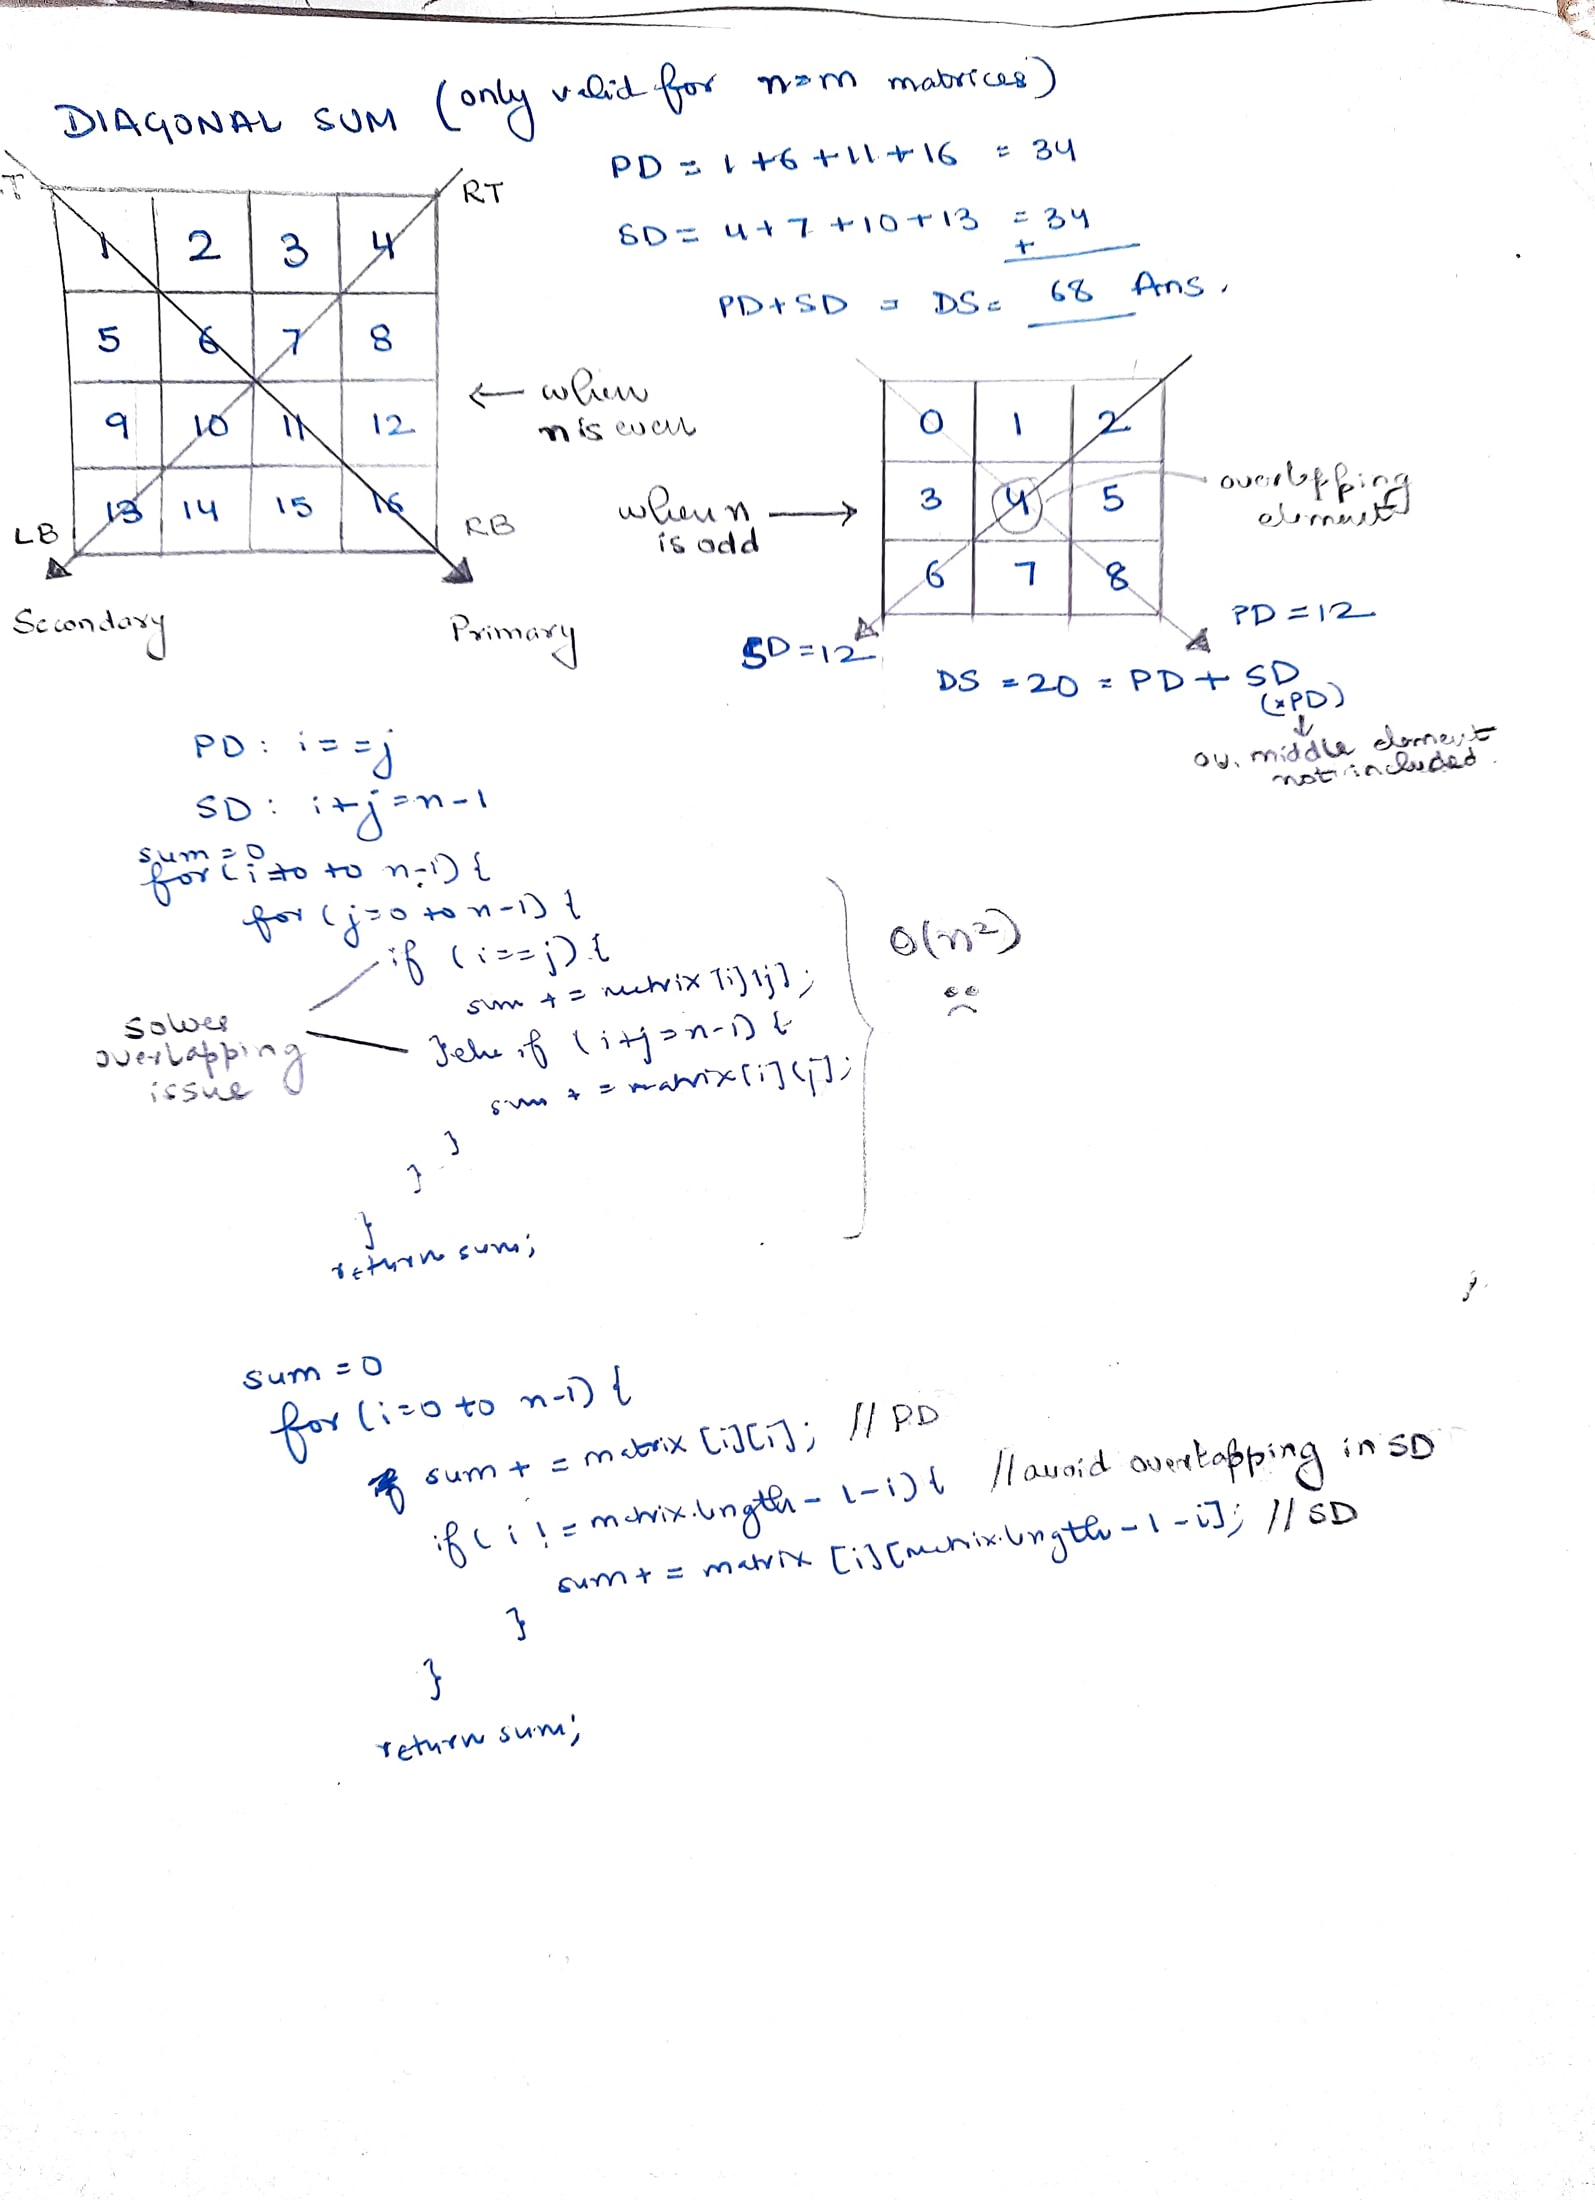 DIAGONAL SUM (only valid for n=m matrices)
PD = 1+6+11+16 = 34
SD = 4+7+10+13 = 34
+
PD+SD = DS = 68 Ans.
T
RT
1 2 3 4
5 6 7 8
9 10 11 12
13 14 15 16
LB
RB
Secondary
Primary
← when
n is even
when n →
is odd
0 1 2
3 4 5
6 7 8
overlapping
element
SD=12
PD=12
DS = 20 = PD + SD
(*PD)
↓
ov. middle element
not included.
PD: i==j
SD: i+j=n-1
sum=0
for(i=0 to n-1){
for(j=0 to n-1){
if (i==j){
sum += matrix[i][j];
}else if (i+j=n-1){
sum += matrix[i][j];
}
}
}
return sum;
solves
overlapping
issue
O(n²)
sum=0
for(i=0 to n-1){
sum+ = matrix[i][i]; // PD
if(i != matrix.length-1-i){ // avoid overlapping in SD
sum+ = matrix[i][matrix.length-1-i]; // SD
}
}
return sum;